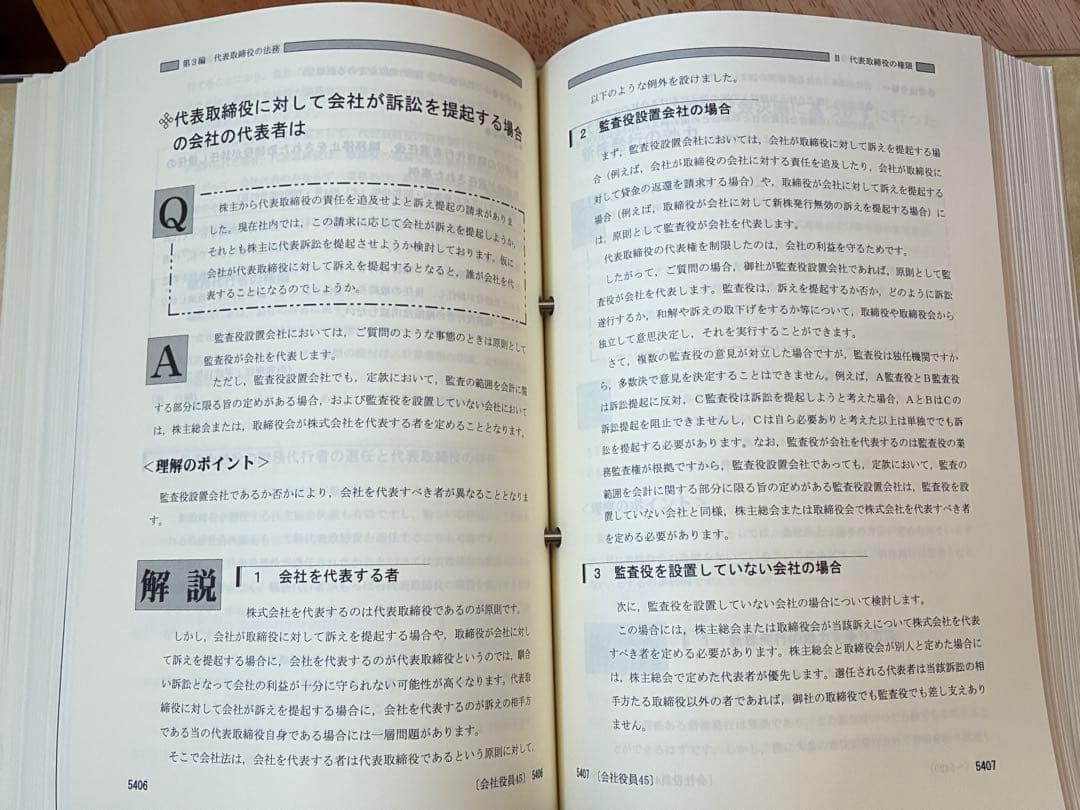 第3編 代表取締役の法務
※代表取締役に対して会社が訴訟を提起する場合
の会社の代表者は
Q
株主から代表取締役の責任を追及せよと訴え提起の請求がありま
した。現在社内では，この請求に応じて会社が訴えを提起しようか，
それとも株主に代表訴訟を提起させようか検討しております。仮に
会社が代表取締役に対して訴えを提起するとなると，誰が会社を代
表することになるのでしょうか。
A
監査役設置会社においては，ご質問のような事態のときは原則として
監査役が会社を代表します。
ただし，監査役設置会社でも，定款において，監査の範囲を会計に関
する部分に限る旨の定めがある場合，および監査役を設置していない会社において
は，株主総会または，取締役会が株式会社を代表する者を定めることとなります。
＜理解のポイント＞
監査役設置会社であるか否かにより，会社を代表すべき者が異なることとなりま
す。
解説
1 会社を代表する者
株式会社を代表するのは代表取締役であるのが原則です。
しかし，会社が取締役に対して訴えを提起する場合や，取締役が会社に対し
て訴えを提起する場合に，会社を代表するのが代表取締役というのでは，馴合
い訴訟となって会社の利益が十分に守られない可能性が高くなります。代表取
締役に対して会社が訴えを提起する場合に，会社を代表するのが訴えの相手方
である当の代表取締役自身である場合には一層問題があります。
そこで会社法は，会社を代表する者は代表取締役であるという原則に対して，
5406
〔会社役員45〕 5406
Ⅱ 代表取締役の権限
以下のような例外を設けました。
2 監査役設置会社の場合
まず，監査役設置会社においては，会社が取締役に対して訴えを提起する場
合（例えば，会社が取締役の会社に対する責任を追及したり，会社が取締役に
対して貸金の返還を請求する場合）や，取締役が会社に対して訴えを提起する
場合（例えば，取締役が会社に対して新株発行無効の訴えを提起する場合）に
は，原則として監査役が会社を代表します。
代表取締役の代表権を制限したのは，会社の利益を守るためです。
したがって，ご質問の場合，御社が監査役設置会社であれば，原則として監
査役が会社を代表します。監査役は，訴えを提起するか否か，どのように訴訟
遂行するか，和解や訴えの取下げをするか等について，取締役や取締役会から
独立して意思決定し，それを実行することができます。
さて，複数の監査役の意見が対立した場合ですが，監査役は独任機関ですか
ら，多数決で意見を決定することはできません。例えば，A監査役とB監査役
は訴訟提起に反対，C監査役は訴訟を提起しようと考えた場合，AとBはCの
訴訟提起を阻止できませんし，Cは自ら必要ありと考えた以上は単独ででも訴
訟を提起する必要があります。なお，監査役が会社を代表するのは監査役の業
務監査権が根拠ですから，監査役設置会社であっても，定款において，監査の
範囲を会計に関する部分に限る旨の定めがある監査役設置会社は，監査役を設
置していない会社と同様，株主総会または取締役会で株式会社を代表すべき者
を定める必要があります。
3 監査役を設置していない会社の場合
次に，監査役を設置していない会社の場合について検討します。
この場合には，株主総会または取締役会が当該訴えについて株式会社を代表
すべき者を定める必要があります。株主総会と取締役会が別人と定めた場合に
は，株主総会で定めた代表者が優先します。選任される代表者は当該訴訟の相
手方たる取締役以外の者であれば，御社の取締役でも監査役でも差し支えあり
ません。
5407 〔会社役員45〕
5407